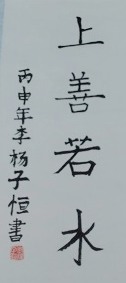 上善若水
丙申年李杨子恒書